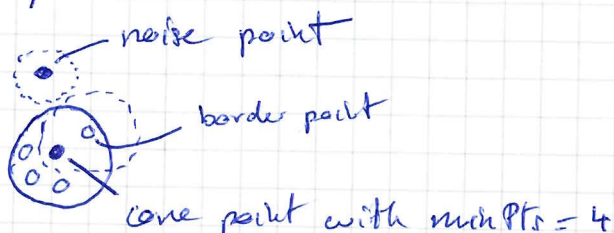 noise point
border point
core point with minPts = 4